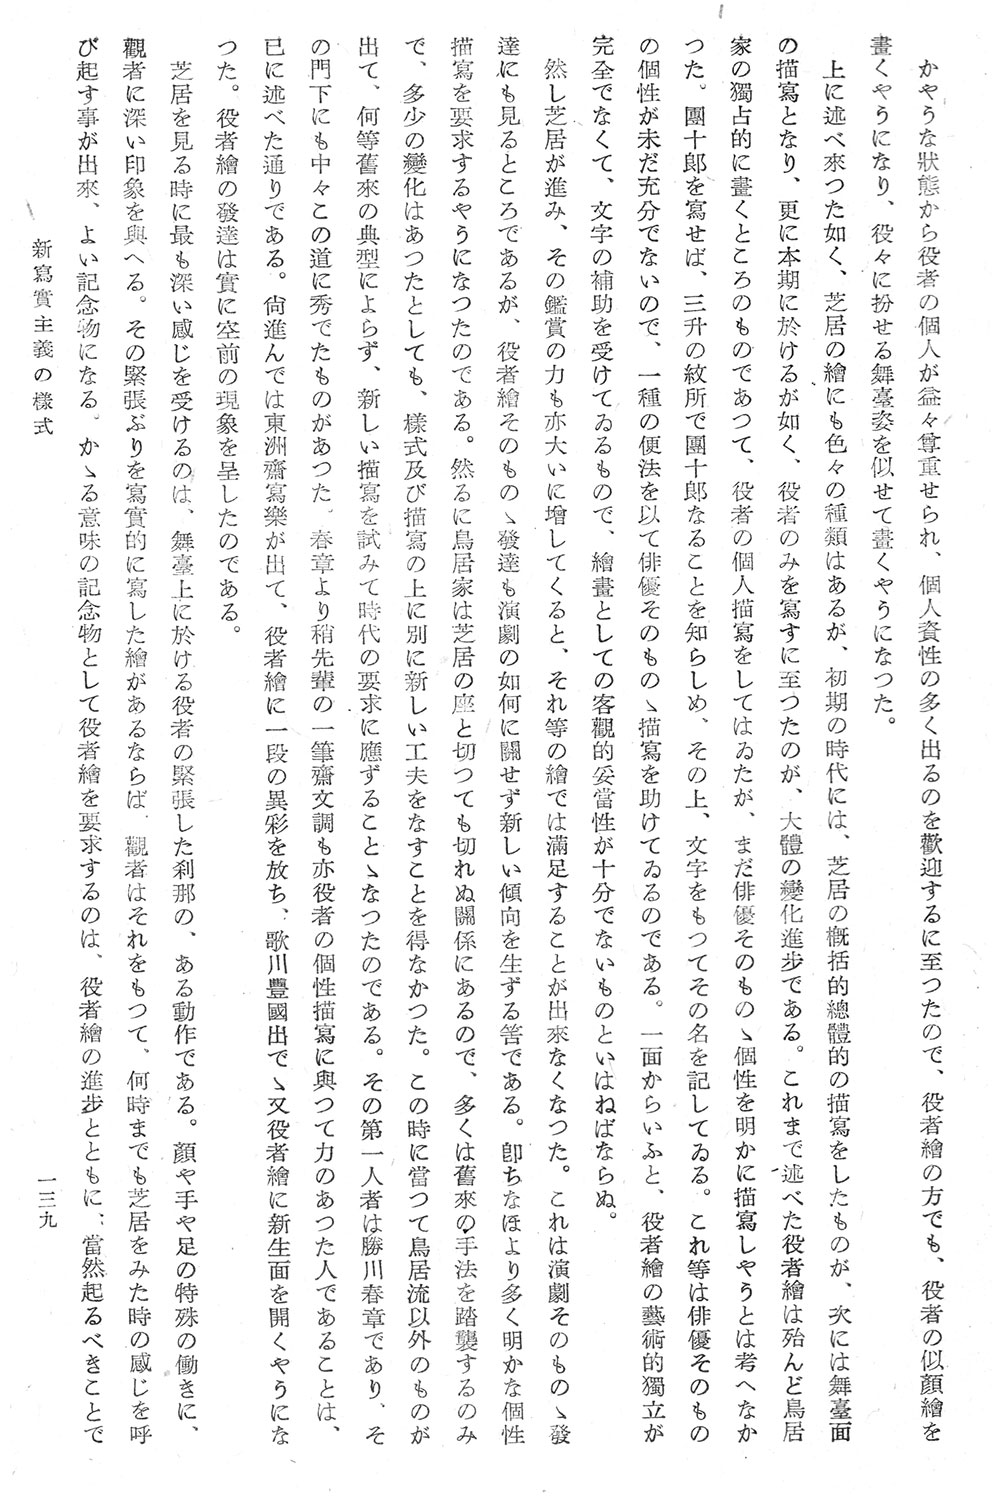 かやうな狀態から役者の個人が益々尊重せられ、個人資性の多く出るのを歡迎するに至つたので、役者繪の方でも、役者の似顔繪を
畫くやうになり、役々に扮せる舞臺姿を似せて畫くやうになつた。
上に述べ來つた如く、芝居の繪にも色々の種類はあるが、初期の時代には、芝居の槪括的總體的の描寫をしたものが、次には舞臺面
の描寫となり、更に本期に於けるが如く、役者のみを寫すに至つたのが、大體の變化進步である。これまで述べた役者繪は殆んど鳥居
家の獨占的に畫くところのものであつて、役者の個人描寫をしてはゐたが、まだ俳優そのものゝ個性を明かに描寫しやうとは考へなか
つた。團十郞を寫せば、三升の紋所で團十郞なることを知らしめ、その上、文字をもつてその名を記してゐる。これ等は俳優そのもの
の個性が未だ充分でないので、一種の便法を以て俳優そのものゝ描寫を助けてゐるのである。一面からいふと、役者繪の藝術的獨立が
完全でなくて、文字の補助を受けてゐるもので、繪畫としての客觀的妥當性が十分でないものといはねばならぬ。
然し芝居が進み、その鑑賞の力も亦大いに增してくると、それ等の繪では滿足することが出來なくなつた。これは演劇そのものゝ發
達にも見るところであるが、役者繪そのものゝ發達も演劇の如何に關せず新しい傾向を生ずる筈である。卽ちなほより多く明かな個性
描寫を要求するやうになつたのである。然るに鳥居家は芝居の座と切つても切れぬ關係にあるので、多くは舊來の手法を踏襲するのみ
で、多少の變化はあつたとしても、樣式及び描寫の上に別に新しい工夫をなすことを得なかつた。この時に當つて鳥居流以外のものが
出て、何等舊來の典型によらず、新しい描寫を試みて時代の要求に應ずることゝなつたのである。その第一人者は勝川春章であり、そ
の門下にも中々この道に秀でたものがあつた。春章より稍先輩の一筆齋文調も亦役者の個性描寫に與つて力のあつた人であることは、
已に述べた通りである。尙進んでは東洲齋寫樂が出て、役者繪に一段の異彩を放ち、歌川豐國出でゝ又役者繪に新生面を開くやうにな
つた。役者繪の發達は實に空前の現象を呈したのである。
芝居を見る時に最も深い感じを受けるのは、舞臺上に於ける役者の緊張した刹那の、ある動作である。顔や手や足の特殊の働きに、
觀者に深い印象を與へる。その緊張ぶりを寫實的に寫した繪があるならば、觀者はそれをもつて、何時までも芝居をみた時の感じを呼
び起す事が出來、よい記念物になる。かゝる意味の記念物として役者繪を要求するのは、役者繪の進步とともに、當然起るべきことで
新寫實主義の樣式
一三九